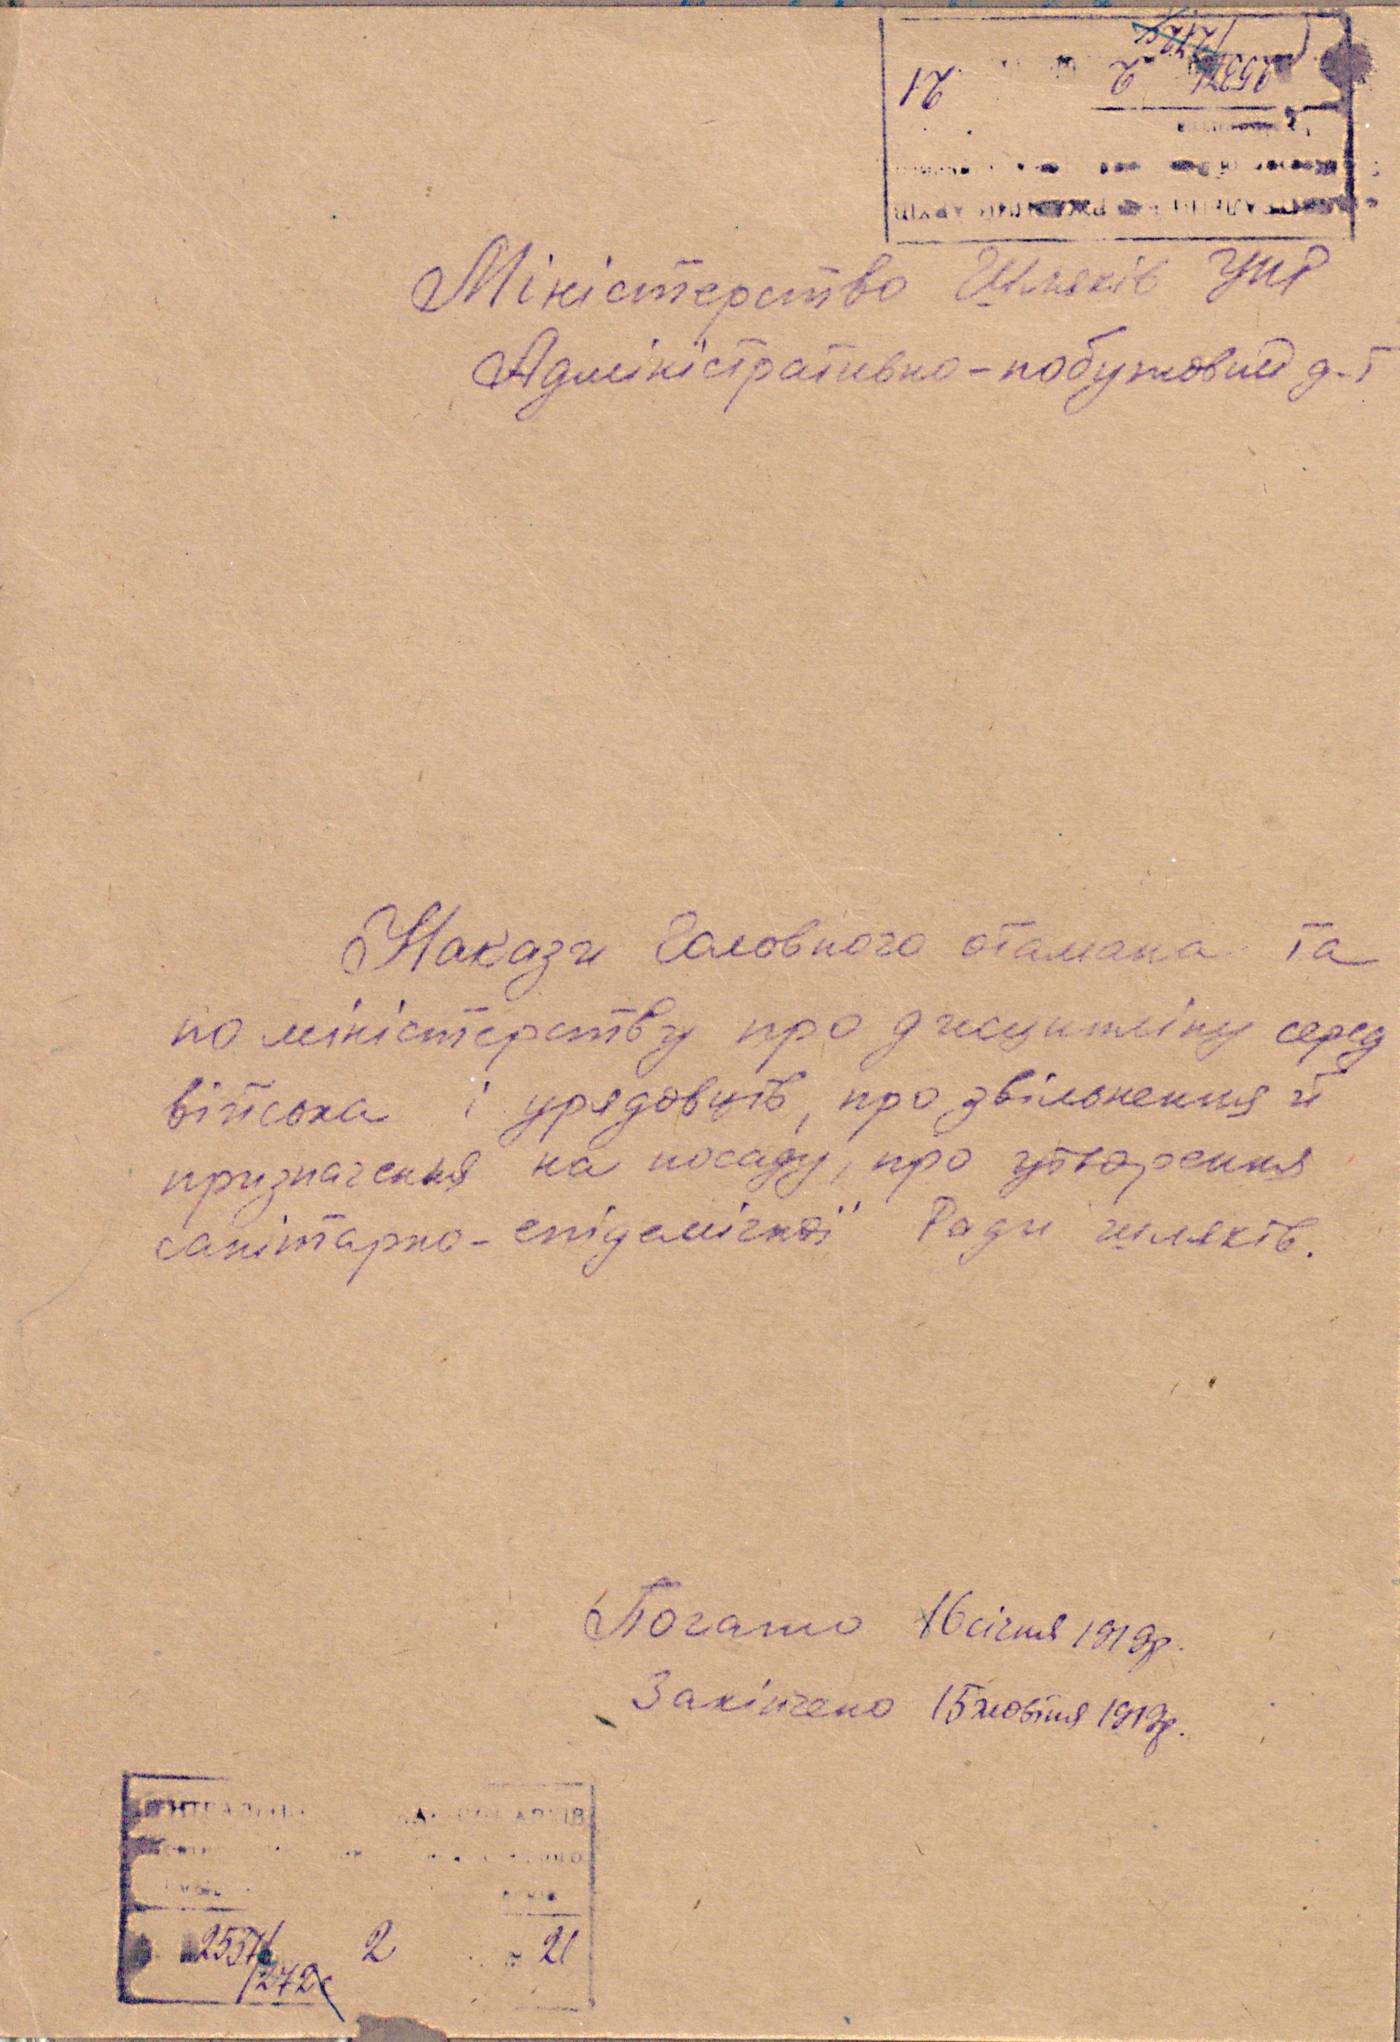 Міністерство Шляхів УНР
Адміністративно-побутовий д-т
Накази Головного отамана та
по міністерству про дисципліну серед
війська і урядовців, про звільнення й
призначення на посаду, про утворення
санітарно-епідемічної Ради шляхів.
Почато 16 січня 1919р.
Закінчено 15 жовтня 1919р.
2
21